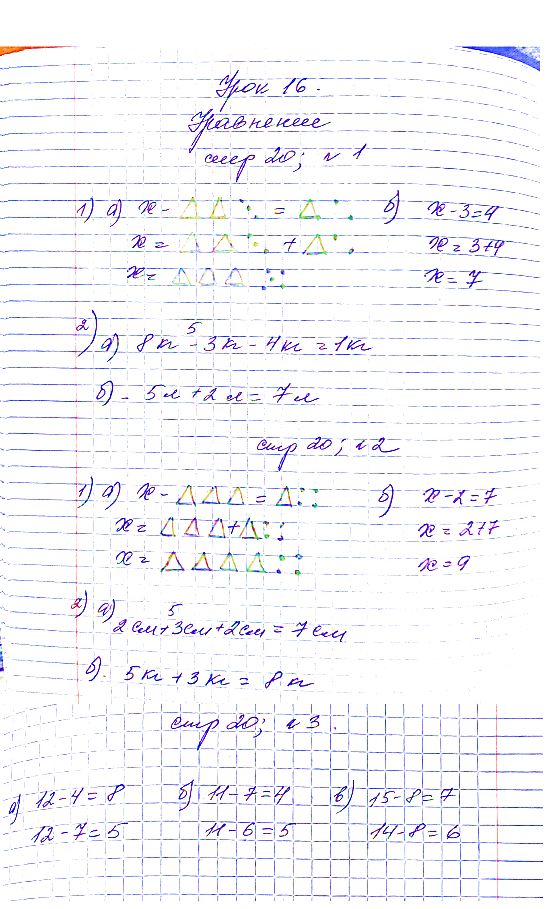 Урок 16.
Уравнение
стр 20; №1
1) а) x - △ △ ∴ = △ : . б) x - 3 = 4
x = △ △ ∴ + △ : . x = 3+4
x = △ △ △ ∷ x = 7
5
2) а) 8кг - 3кг - 4кг = 1кг
б) - 5л + 2л = 7л
стр 20; №2
1) а) x - △ △ △ = △ ∷ б) x - 2 = 7
x = △ △ △ + △ ∷ x = 2+7
x = △ △ △ △ ∷ x = 9
5
2) а) 2см + 3см + 2см = 7см
б). 5кг + 3кг = 8кг
стр 20; №3.
а) 12 - 4 = 8 б) 11 - 7 = 4 в) 15 - 8 = 7
12 - 7 = 5 11 - 6 = 5 14 - 8 = 6